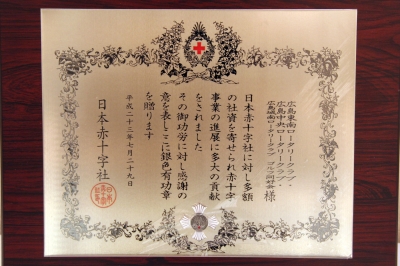 広島東南ロータリークラブ・
広島中央ロータリークラブ・
広島城南ロータリークラブ ゴルフ同好会 様
日本赤十字社に対し多額
の社資を寄せられ赤十字
事業の進展に多大の貢献
をされました
その御功労に対し感謝の
意を表しここに銀色有功章
を贈ります
平成二十三年七月二十九日
日本赤十字社